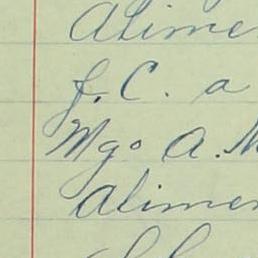 Alime
J. C. a
Mgo A. M
Alimen